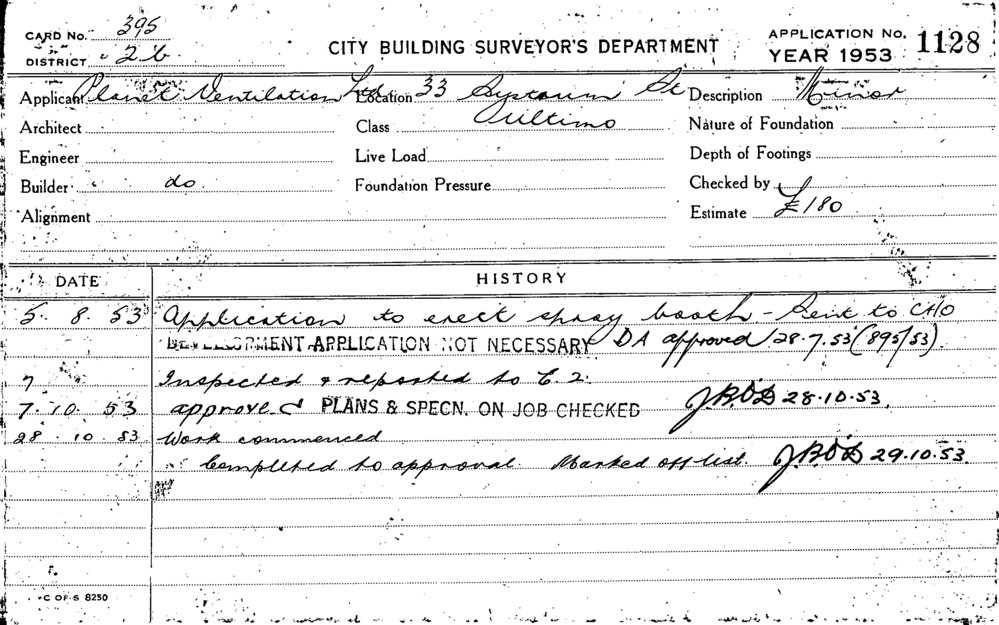 CARD No. 395
DISTRICT 2b
CITY BUILDING SURVEYOR'S DEPARTMENT
APPLICATION No. 1128
YEAR 1953
Applicant Planet Ventilation Ltd Location 33 St Description Minor
Architect Class Ultimo Nature of Foundation
Engineer Live Load Depth of Footings
Builder do. Foundation Pressure Checked by
Alignment Estimate £180
DATE HISTORY
5. 8. 53 Application to erect spray booth - Sent to CHO
DEVELOPMENT APPLICATION NOT NECESSARY DA approved 28.7.53 (895/53).
7 Inspected & reported to C.2.
7. 10. 53 approved PLANS & SPECN. ON JOB CHECKED J.B.O'D 28.10.53.
28. 10. 53 Work commenced
Completed to approval. Marked off list. J.B.O'D 29.10.53.
C OF S 8250